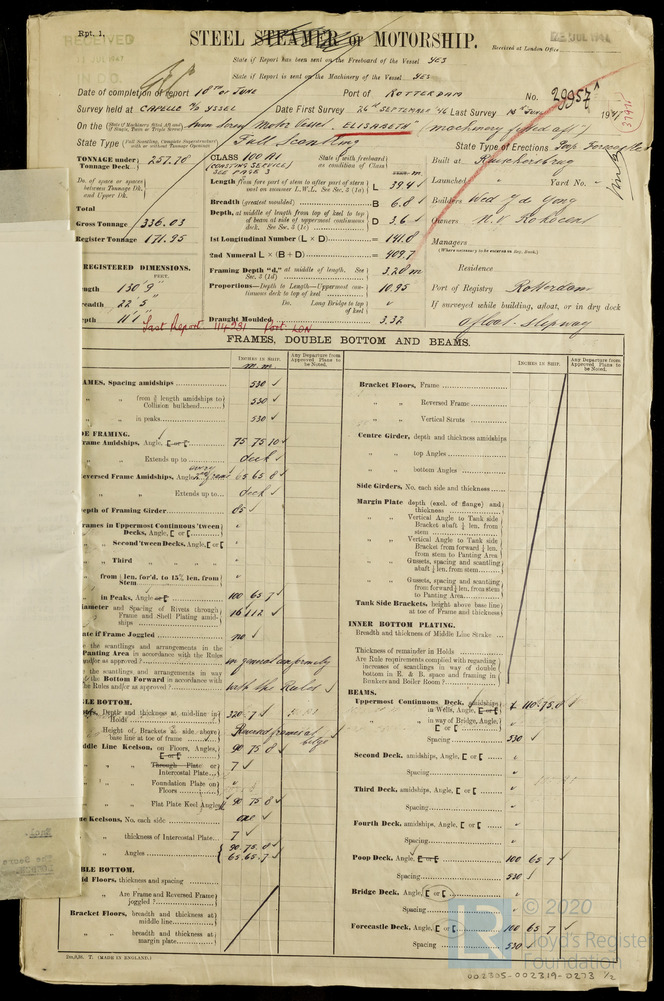 Rpt. 1.
RECEIVED
STEEL STEAMER or MOTORSHIP.
Received at London Office
State if Report has been sent on the Freeboard of the Vessel YES
State if Report is sent on the Machinery of the Vessel YES
Date of completion of report 10TH OF JUNE Port of ROTTERDAM No. 29957A
Survey held at CAPELLE a/d YSSEL Date First Survey 26th SEPTEMBER '46 Last Survey 10th June 1947
On the (State if Machinery fitted aft and if Single, Twin or Triple Screw) Motor Vessel "ELISABETH" (machinery fitted aft)
State Type (Full Scantling, Complete Superstructure with or without Tonnage Openings) Full Scantling State Type of Erections Poop Forecastle
TONNAGE under Tonnage Deck 257.70
CLASS 100A1 State if (with freeboard) as condition of Class
(COASTING SERVICE)
SEE PAGE 3
Built at
Do. of space or spaces between Tonnage Dk. and Upper Dk.
Length (from fore part of stem to after part of stern post on summer L.W.L. See Sec. 3 (1a) L 39.4
Launched Yard No. -
Total
Breadth (greatest moulded) B 6.8
Builders Wed.
Gross Tonnage 336.03
Depth, at middle of length from top of keel to top of beam at side of uppermost continuous deck. See Sec. 3 (1c) D 3.6
Owners N.V.
Register Tonnage 171.95
1st Longitudinal Number (L × D) = 141.8
Managers
(Where necessary to be entered on Reg. Book.)
2nd Numeral L × (B + D) = 409.7
REGISTERED DIMENSIONS.
FEET.
Framing Depth "d," at middle of length. See Sec. 3 (1d) 3.20 m
Residence
Length 130' 9"
Proportions—Depth to Length—Uppermost continuous deck to top of keel 10.95
Port of Registry Rotterdam
Breadth 22' 5"
Do. Long Bridge to top of keel
If surveyed while building, afloat, or in dry dock
Depth 11' 1"
Last Report. 114991 Port. LON
Draught Moulded 3.32
afloat - slipway
FRAMES, DOUBLE BOTTOM AND BEAMS.
INCHES IN SHIP. m.m. Any Departure from Approved Plans to be Noted.
FRAMES, Spacing amidships 530
" " from ⅗ length amidships to Collision bulkhead 530
" " in peaks 530
SIDE FRAMING.
Frame Amidships, Angle, [ or [ 75 75 10
" " Extends up to deck
Reversed Frame Amidships, Angle 65.65.8
" " Extends up to deck
Depth of Framing Girder 65
Frames in Uppermost Continuous 'tween Decks, Angle, [ or [
" " Second 'tween Decks, Angle, [ or [
" " Third " " "
" from ⅕ len. for'd. to 15% len. from Stem
" in Peaks, Angle or [ 100 65 7
Diameter and Spacing of Rivets through Frame and Shell Plating amidships 16 112
State if Frame Joggled no
Are the scantlings and arrangements in the Panting Area in accordance with the Rules and/or as approved? in general conformity
Are the scantlings, and arrangements in way of the Bottom Forward in accordance with the Rules and/or as approved? with the Rules
SINGLE BOTTOM.
Floors, Depth and thickness at mid-line in Holds 320.7
Height of Brackets at side above base line at toe of frame
Middle Line Keelson, on Floors, Angles, [ or [ 90 75 8
" " Through Plate or Intercostal Plate 7
" " Foundation Plate on Floors
" " Flat Plate Keel Angles 90 75 8
Side Keelsons, No. each side one
" " thickness of Intercostal Plate 7
" " Angles 90.75.8
65.65.7
DOUBLE BOTTOM.
Solid Floors, thickness and spacing
" " Are Frame and Reversed Frame joggled?
Bracket Floors, breadth and thickness at middle line
" " breadth and thickness at margin plate
INCHES IN SHIP. Any Departure from Approved Plans to be Noted.
Bracket Floors, Frame
" " Reversed Frame
" " Vertical Struts
Centre Girder, depth and thickness amidships
" " top Angles
" " bottom Angles
Side Girders, No. each side and thickness
Margin Plate depth (excl. of flange) and thickness
" " Vertical Angle to Tank side Bracket abaft ¼ len. from stem
" " Vertical Angle to Tank side Bracket from forward ¼ len. from stem to Panting Area
" " Gussets, spacing and scantling abaft ¼ len. from stem
" " Gussets, spacing and scantling from forward ¼ len. from stem to Panting Area
Tank Side Brackets, height above base line at toe of Frame and thickness
INNER BOTTOM PLATING.
Breadth and thickness of Middle Line Strake
Thickness of remainder in Holds
Are Rule requirements complied with regarding increases of scantlings in way of double bottom in E. & B. space and framing in Bunkers and Boiler Room?
BEAMS.
Uppermost Continuous Deck, amidships in Wells, Angle, [ or [ 110.75.8
" " in way of Bridge, Angle, [ or [
Spacing 530
Second Deck, amidships, Angle, [ or [
Spacing
Third Deck, amidships, Angle, [ or [
Spacing
Fourth Deck, amidships, Angle, [ or [
Spacing
Poop Deck, Angle, [ or [ 100 65 7
Spacing 530
Bridge Deck, Angle, [ or [
Spacing
Forecastle Deck, Angle, [ or [ 100 65 7
Spacing 530
(MADE IN ENGLAND.)
LR © 2020
Lloyd's Register
Foundation
002305-002319-0273 1/2